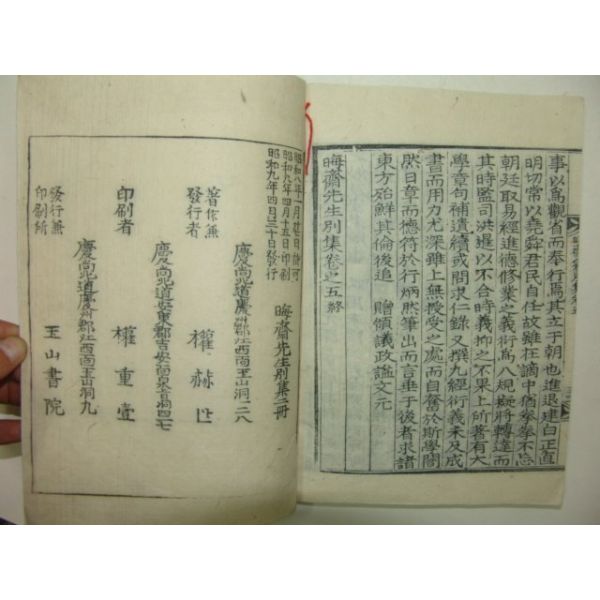 事以爲觀省而奉行焉其立于朝也進退建白正直
明切常以堯舜君民自任故雖在謫中猶拳拳不忘
朝廷取易經進德修業之義衍爲八規擬將轉達而
其時監司洪暹以不合時義抑之不果上所著有大
學章句補遺續或問求仁錄又撰九經衍義未及成
書而用力尤深雖上無授受之處而自奮於斯學闇
然日章而德符於行炳然筆出而言垂于後者求諸
東方殆鮮其倫後追 贈領議政諡文元
晦齋先生別集卷之五終
昭和八年一月 日許可
昭和九年四月十五日印刷
昭和九年四月三十日發行
晦齋先生別集二冊
慶尙北道慶州郡江西面玉山洞一二八
著作兼發行者 權赫世
慶尙北道安東郡吉安面泉旨洞四七
印刷者 權重壹
慶尙北道慶州郡江西面玉山洞九
發行兼印刷所 玉山書院